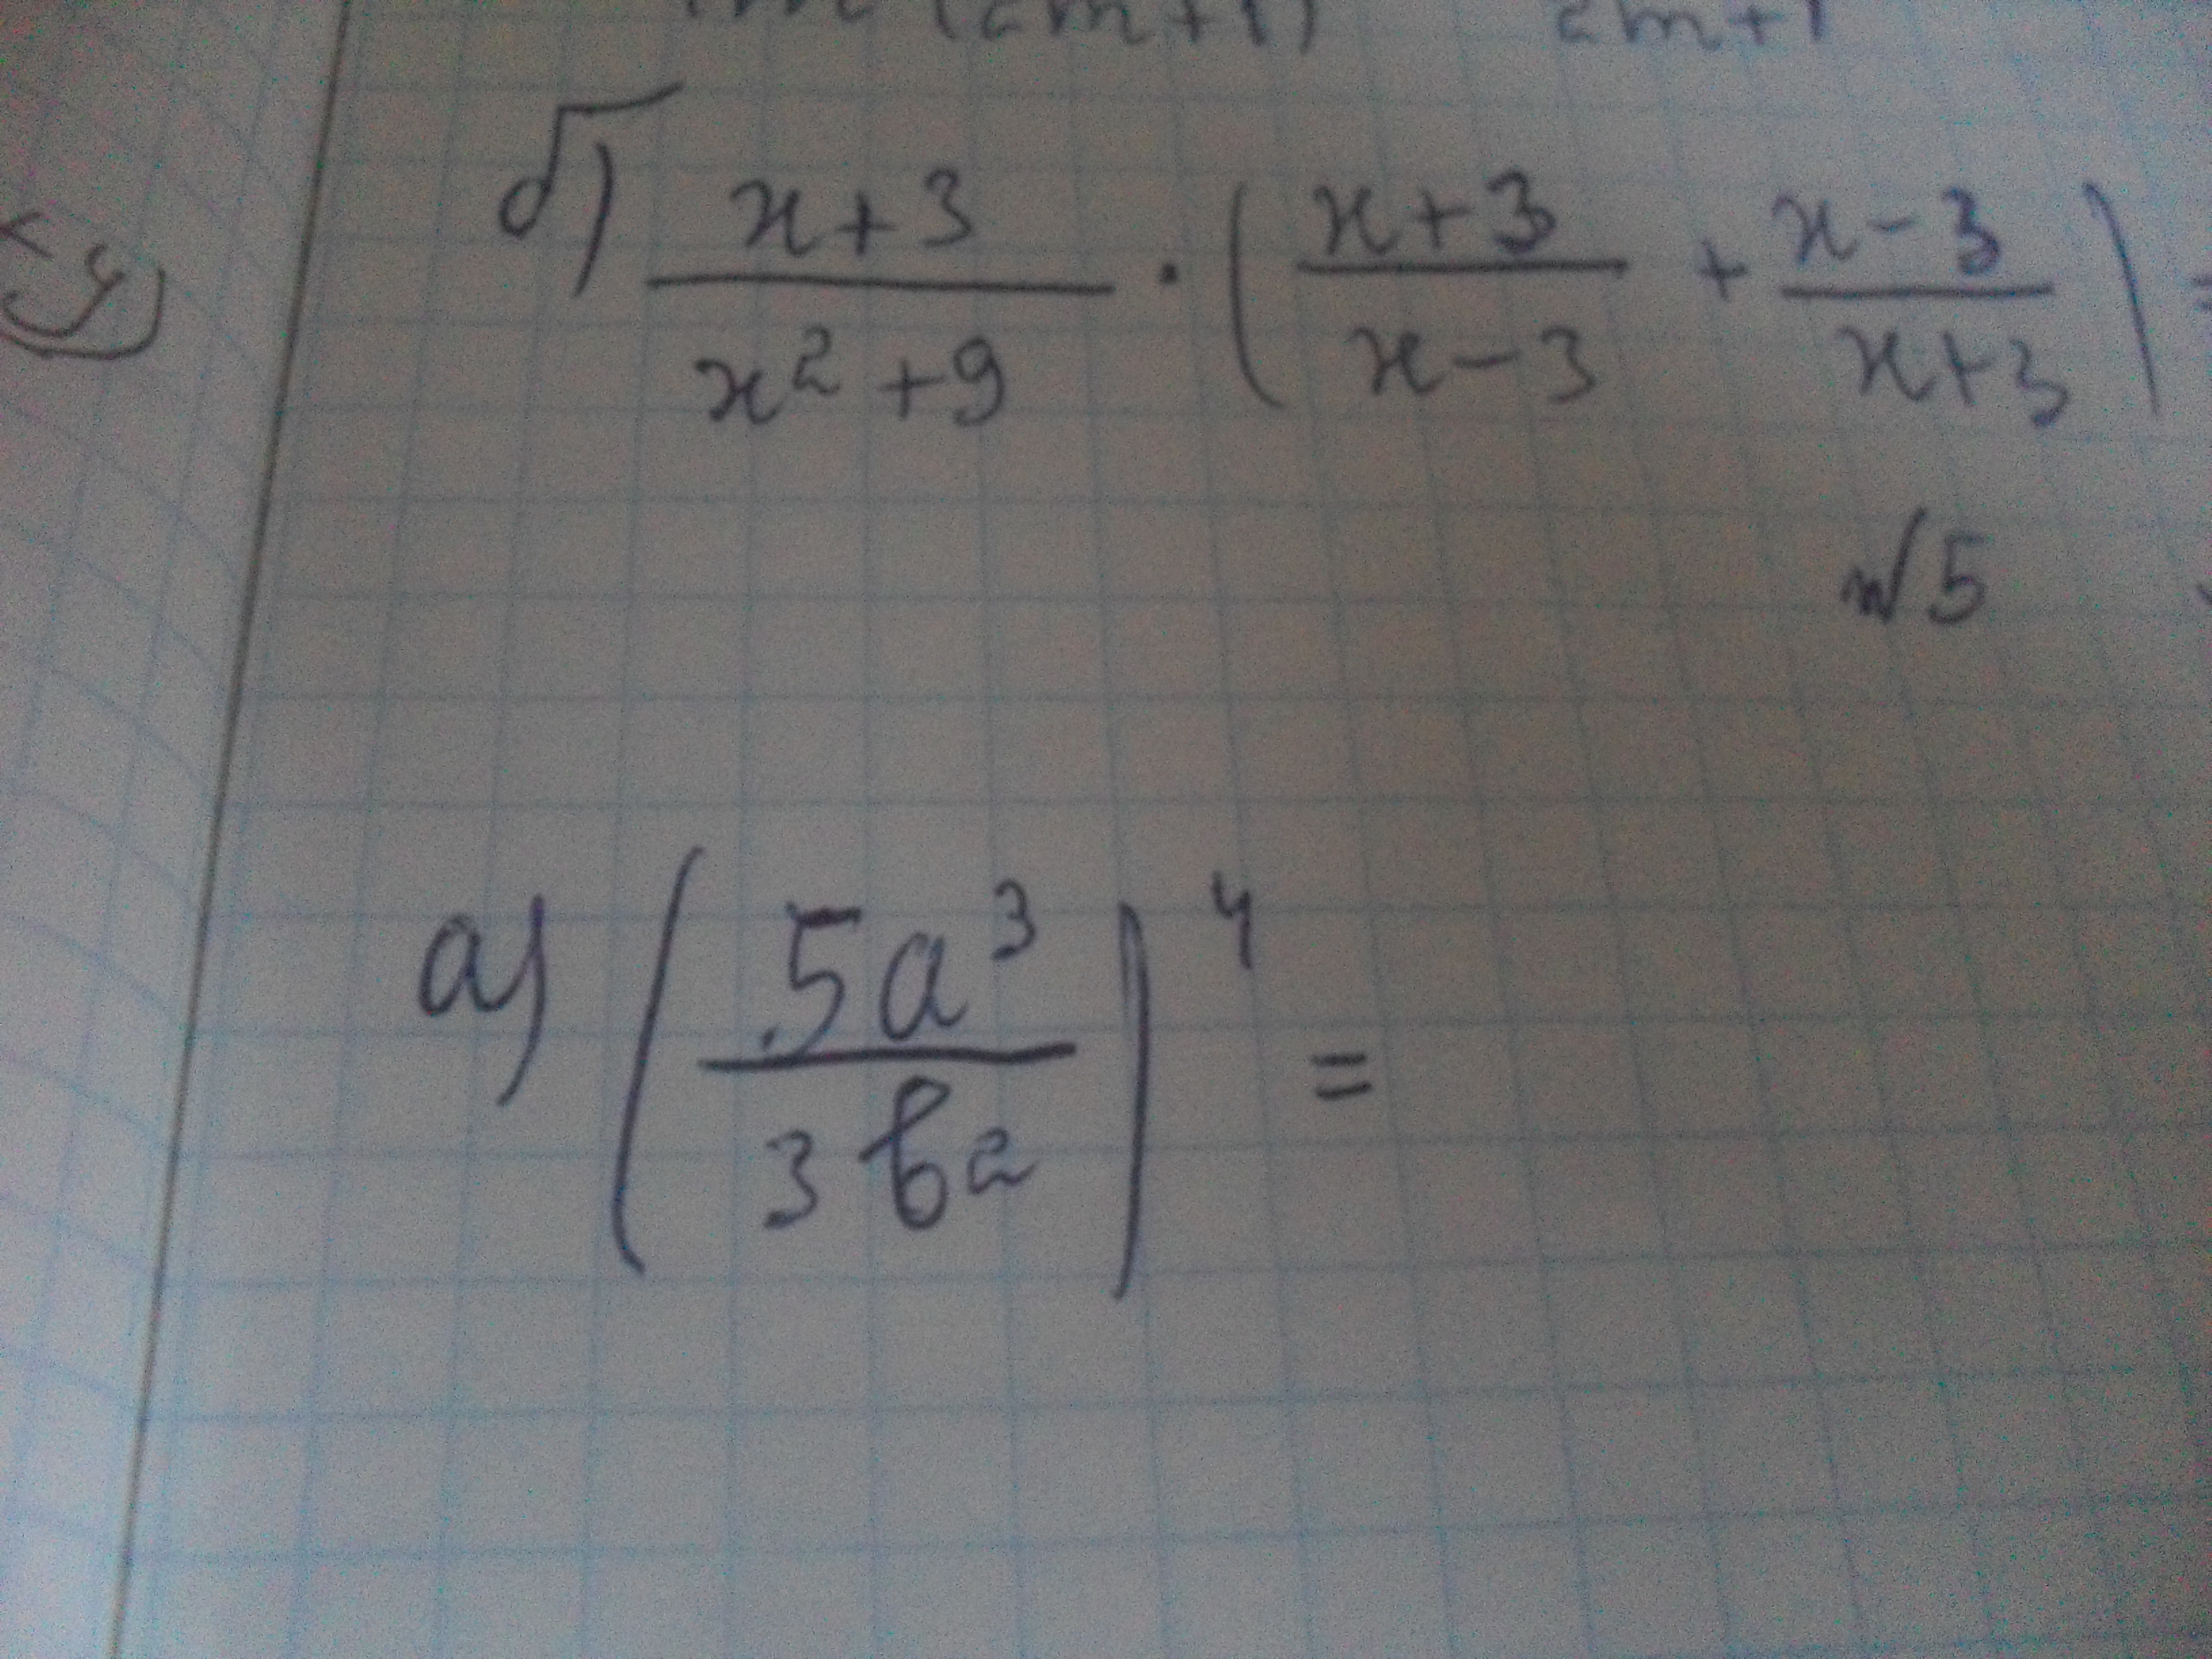 б) (x+3)/(x²+9) · ((x+3)/(x-3) + (x-3)/(x+3)) =
№5
а) (5a³/3b²)⁴ =